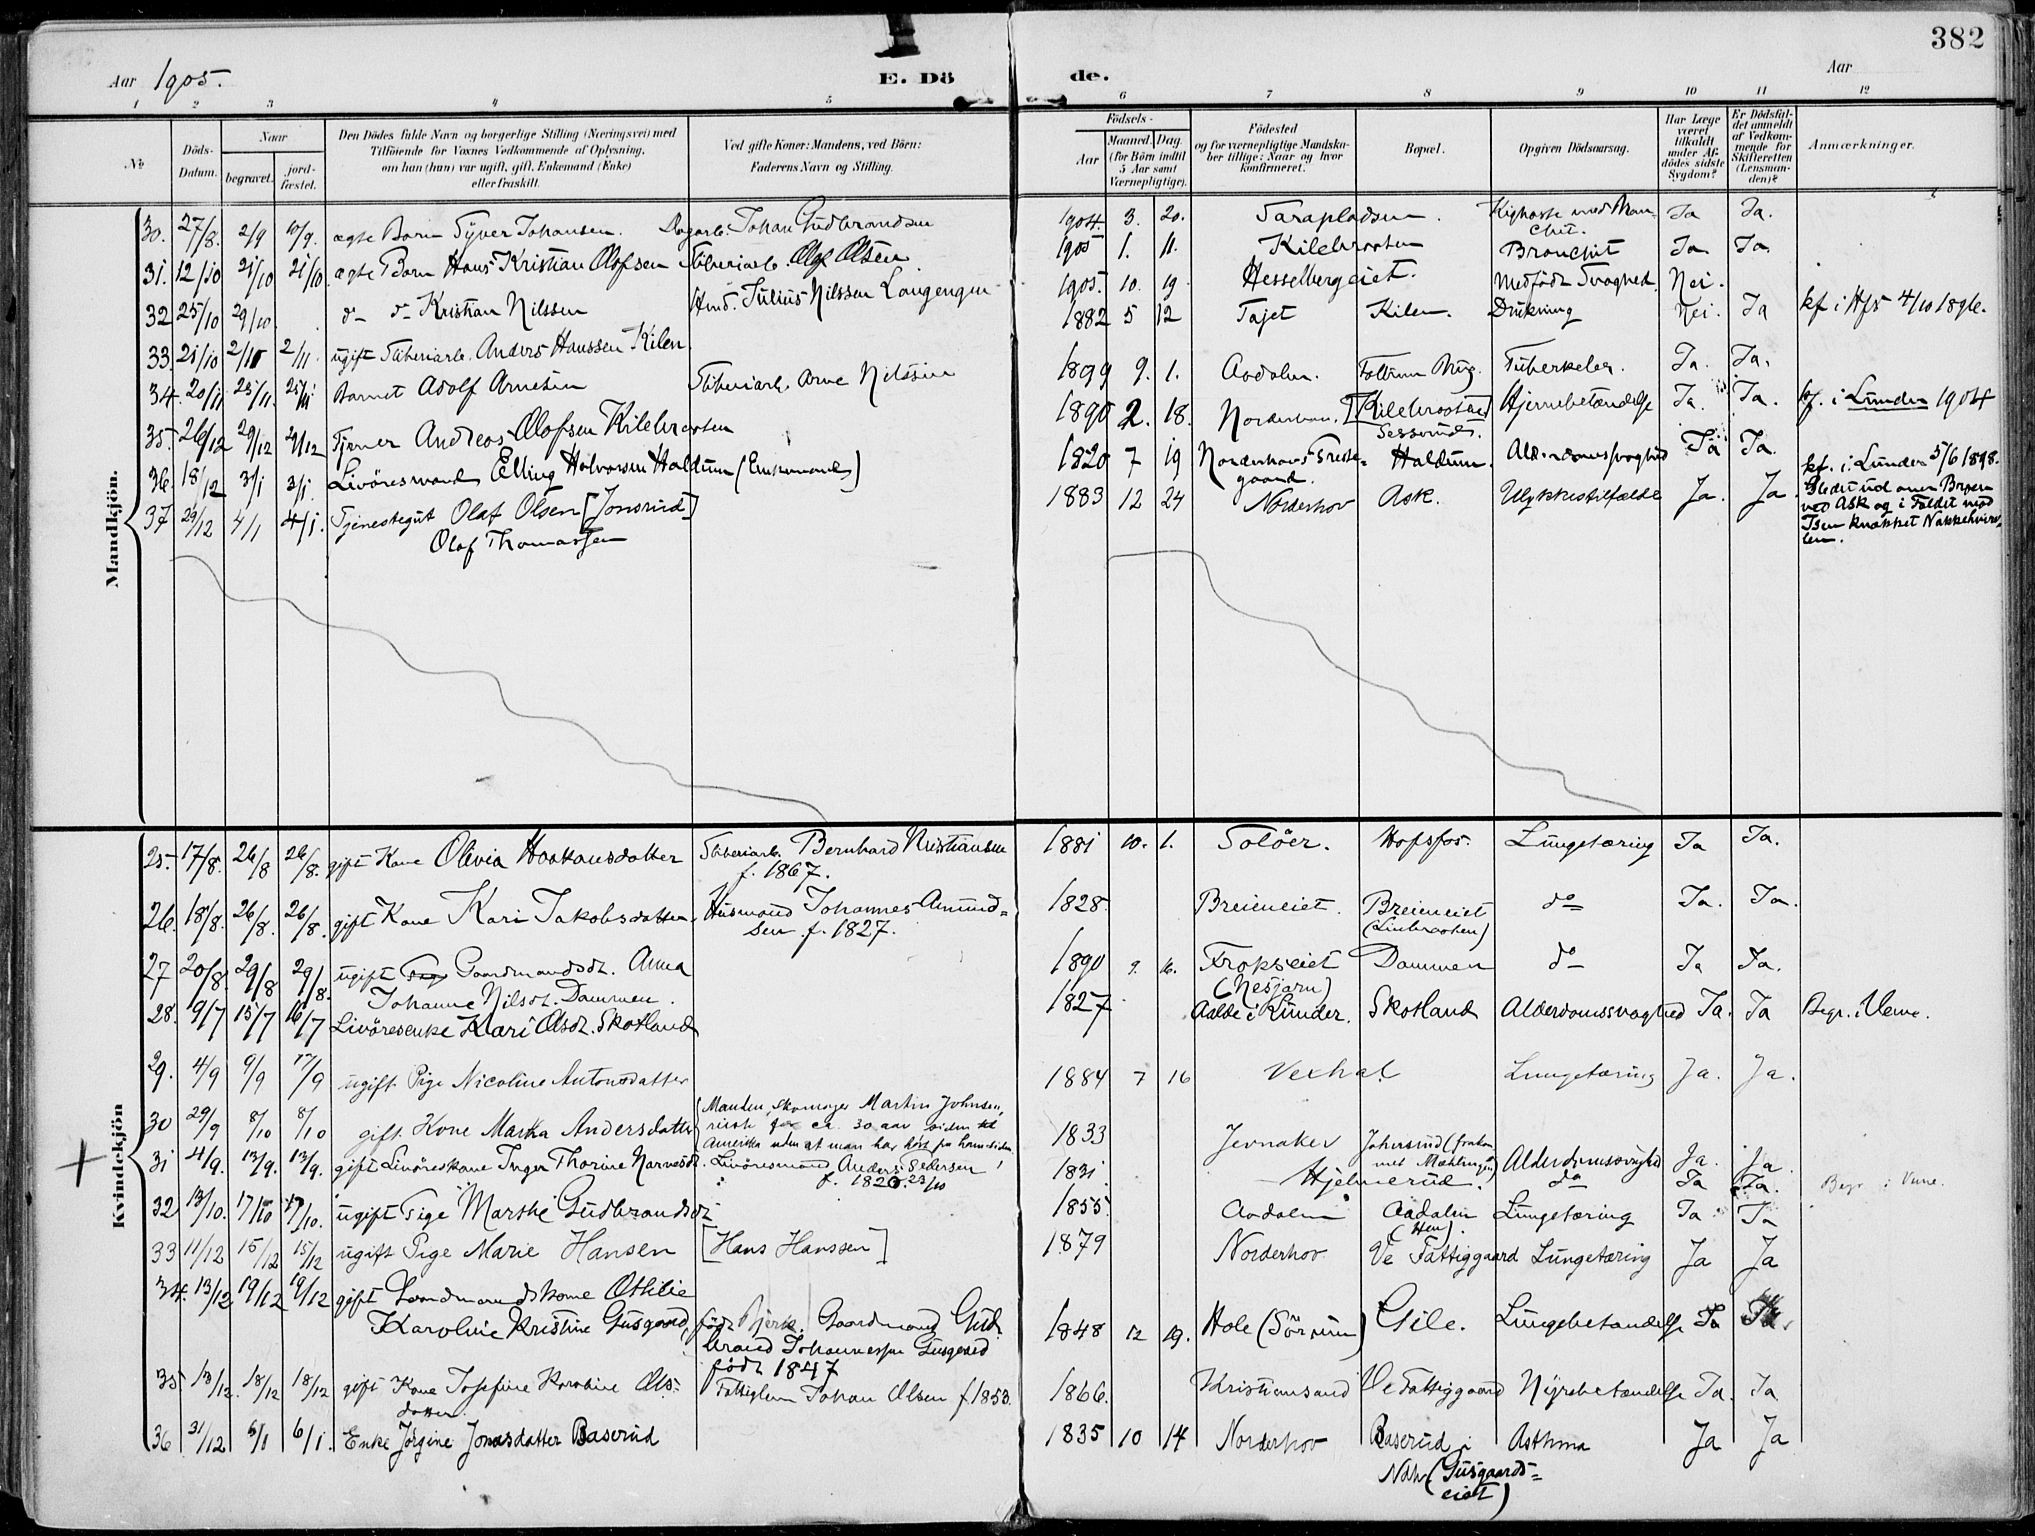 382
Aar 1905.
E. Dö de.
Aar
1 2 3 4 5 6 7 8 9 10 11 12
No
Döds-Datum.
Naar
begravet.
jord-fæstet.
Den Dödes fulde Navn og borgerlige Stilling (Næringsvei) med
Tilföiende for Voxnes Vedkommende af Oplysning,
om han (hun) var ugift, gift, Enkemand (Enke)
eller fraskilt.
Ved gifte Koner: Mandens, ved Börn:
Faderens Navn og Stilling.
Födsels-
Aar
Maaned. Dag
(for Börn indtil
5 Aar samt
Værnepligtige).
Födested
og for værnepligtige Mandska-
ber tillige: Naar og hvor
konfirmeret.
Bopæl.
Opgiven Dödsaarsag.
Har Læge
været
tilkaldt
under Af-
dödes sidste
Sygdom?
Er Dödsfal-
det anmeldt
af Vedkom-
mende for
Skifteretten
(Lensman-
den)?
Anmærkninger.
Mandkjön.
30. 27/8. 2/9 10/9. ægte Barn Syver Johansen. Dagarb. Johan Gudbrandsen 1904. 3. 20. Tarapladsen. Kighoste med Bron-
chit. Ja Ja.
31. 12/10 21/10 21/10 ægte Barn Hans Kristian Olofsen Sliberiarb. Olof Olsen. 1905 1. 11. Kilebraaten Bronchit Ja Ja
32 25/10 29/10 d- d- Kristian Nilssen Husd. Julius Nilssen Langengen 1905. 10. 19 Hesselbergeiet. Medfödt Svaghed. Nei.
33. 21/10 2/11 2/11. ugift Sliberiarb. Anders Hanssen Kilen 1882 5 12 Tajet Kilen. Drukning Nei. Ja kf. i Hfs 4/10 1896.
34. 20/11 25/11. 25/11 Barnet Adolf Arnesen Sliberiarb. Arne Nilssen 1899 9. 1. Aadalen. Follum Brug. Tuberkeler. Ja. Ja.
35. 26/12 29/12 29/12 Tjener Andreas Olofsen Kilebraaten 1890 2. 18. Norderhov. [Kilebraaten]
Sessrud. Hjernebetændelse Ja. Ja. kf. i Lunder 1904
36. 18/12 3/1 3/1. Livöresmand Elling Halvorsen Haldum (Enkemand) 1820 7 19 Norderhovs Preste-
gaard. Haldum. Alderdomssvaghed Ja Ja.
37 29/12 4/1 4/1. Tjenestegut Olaf Olsen [Jonsrud]
Olof Thomassen 1883 12 24 Norderhov Ask. Ulykkestilfælde Ja. Ja. kf. i Lunder 5/6 1898.
Gledet ud over Broen
ved Ask og i Faldet mod
Isen knækket Nakkehvirve-
len.
Kvindekjön
25. 17/8. 26/8 26/8. gift Kone Olivia Haakonsdatter Sliberiarb. Bernhard Kristiansen
f. 1867. 1881 10. 1. Solöer. Hofsfos. Lungetæring Ja Ja.
26. 18/8. 26/8. 26/8. gift Kone Kari Jakobsdatter Husmand Johannes Amund-
sen f. 1827. 1828 Breieneiet. Breieneiet
(Linbraaten) do Ja. Ja.
27 20/8. 29/8 29/8. ugift Gaardmandsdt. Anna
Johanne Nilsdt. Dammen. 1890 9. 16. Frokseiet
(Nesjarn) Dammen do Ja Ja.
28. 9/7 15/7 16/7 Livöresenke Kari Olsdt. Skotland 1827 Aalde i Lunder. Skotland Alderdomssvaghed Ja. Ja Begr. i Veme.
29. 4/9 9/9 17/9 ugift Pige Nicoline Antonsdatter 1884 7 16 Vexhal Lungetæring Ja. Ja.
30 29/9 8/10 8/10 gift. Kone Martha Andersdatter Manden, Skomager Martin Johnsen,
reiste for ca. 30 aar siden til
Amerika uden at man har hört fra ham siden. 1833 Jevnaker
31 4/9. 13/9. 13/9. gift Livöreskone Inger Thorine Narvesdt. Livöresmand Anders Pedersen
f. 1826 23/10 1831. Hjelmerud. Alderdomssvaghed Ja. Ja.
do Ja Ja. Begr. i Veme.
32 13/10. 17/10 17/10. ugift Pige Marthe Gudbrandsdt. 1855. Aadalen Aadalen
(Hen) Lungetæring Ja Ja
33 11/12 15/12 15/12 ugift Pige Marie Hansen [Hans Hanssen] 1879 Norderhov Ve Fattiggaard Lungetæring Ja Ja
34. 13/12 19/12 19/12 gift Landmandskone Othilie
Karoline Kristine Gusgaard, födt Bjerk. Gaardmand Gud-
brand Johannessen Gusgaard
födt 1847 1848 12 19. Hole (Sörum) Gile. Lungebetændelse Ja
35 13/12. 18/12 18/12 gift Kone Josefine Karoline Ols-
datter Fattiglem Johan Olsen f. 1853. 1866. Kristiansand Ve Fattiggaard Nyrebetændelse Ja. Ja
36 31/12 6/1 6/1. Enke Jörgine Jonasdatter Baserud 1835 10 14 Norderhov Baserud i
Ndh (Gusgaards-
eiet) Asthma Ja Ja